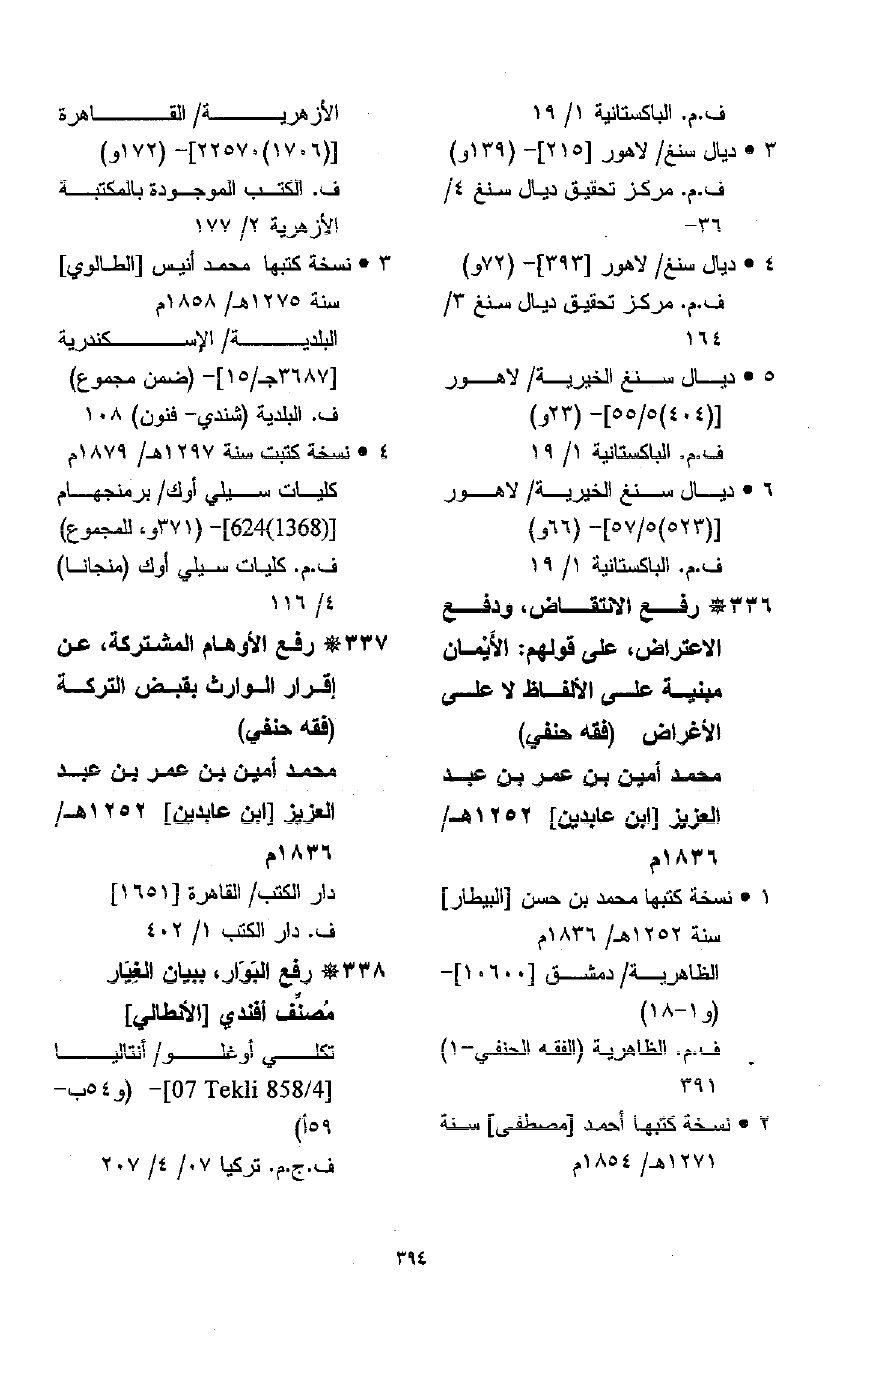 ف.م. الباكستانية ١/ ١٩
٣ • ديال سنغ/ لاهور [٢١٥]- (١٣٩و)
ف.م. مركز تحقيق ديال سنغ ٤/
٣٦-
٤ • ديال سنغ/ لاهور [٣٩٣]- (٧٢و)
ف.م. مركز تحقيق ديال سنغ ٣/
١٦٤
٥ • ديال سنغ الخيرية/ لاهور
[٥٥/٥(٤٠٤)]- (٢٣و)
ف.م. الباكستانية ١/ ١٩
٦ • ديال سنغ الخيرية/ لاهور
[٥٧/٥(٥٢٣)]- (٦٦و)
ف.م. الباكستانية ١/ ١٩
٣٣٦※ رفع الانتقاض، ودفع
الاعتراض، على قولهم: الأَيْمان
مبنية على الألفاظ لا على
الأغراض (فقه حنفي)
محمد أمين بن عمر بن عبد
العزيز [ابن عابدين] ١٢٥٢هـ/
١٨٣٦م
١ • نسخة كتبها محمد بن حسن [البيطار]
سنة ١٢٥٢هـ/ ١٨٣٦م
الظاهرية/ دمشق [١٠٦٠٠]-
(و١-١٨)
ف.م. الظاهرية (الفقه الحنفي-١)
٣٩١
٢ • نسخة كتبها أحمد [مصطفى] سنة
١٢٧١هـ/ ١٨٥٤م
الأزهرية/ القاهرة
[(١٧٠٦)٢٢٥٧٠]- (١٧٢و)
ف. الكتب الموجودة بالمكتبة
الأزهرية ٢/ ١٧٧
٣ • نسخة كتبها محمد أنيس [الطالوي]
سنة ١٢٧٥هـ/ ١٨٥٨م
البلدية/ الإسكندرية
[٣٦٨٧جـ/١٥]- (ضمن مجموع)
ف. البلدية (شندي- فنون) ١٠٨
٤ • نسخة كتبت سنة ١٢٩٧هـ/ ١٨٧٩م
كليات سيلي أوك/ برمنجهام
[624(1368)]- (٣٧١و، للمجموع)
ف.م. كليات سيلي أوك (منجانا)
٤/ ١١٦
٣٣٧※ رفع الأوهام المشتركة، عن
إقرار الوارث بقبض التركة
(فقه حنفي)
محمد أمين بن عمر بن عبد
العزيز [ابن عابدين] ١٢٥٢هـ/
١٨٣٦م
دار الكتب/ القاهرة [١٦٥١]
ف. دار الكتب ١/ ٤٠٢
٣٣٨※ رفع البَوَار، ببيان الغِيَار
مُصنِّف أفندي [الأنطالي]
تكلي أوغلو/ أنتاليا
[07 Tekli 858/4]- (و٥٤ب-
٥٩أ)
ف.ج.م. تركيا ٠٧/ ٤/ ٢٠٧
٣٩٤